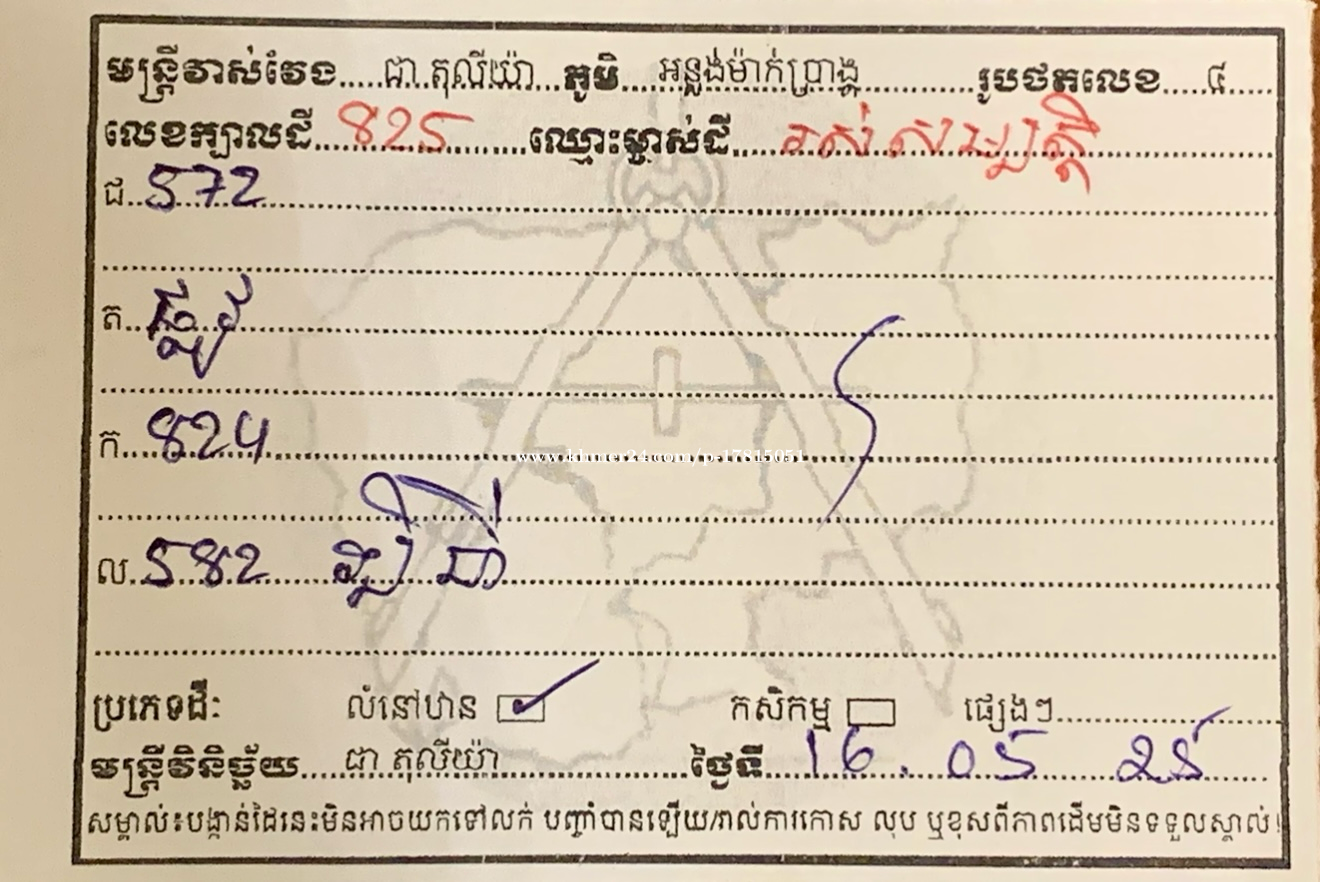 មន្ត្រីវាស់វែង.....ជា.តុលីយ៉ា...ភូមិ....អន្លង់ម៉ាក់ប្រាង្គ..............រូបថតលេខ.....៨.....
លេខក្បាលដី....825..........ឈ្មោះម្ចាស់ដី.....រស់ សម្បត្តិ
ជ..572
ត..ផ្លូវ
ក..824
www.khmer24.com/p-17815051
ល.582
ប្រភេទដីៈ លំនៅឋាន កសិកម្ម ផ្សេងៗ
មន្ត្រីវិនិច្ឆ័យ....ជា តុលីយ៉ា..................ថ្ងៃទី....16.05 25
សម្គាល់៖បង្កាន់ដៃនេះមិនអាចយកទៅលក់ បញ្ចាំបានឡើយ/រាល់ការកោស លុប ឬខុសពីភាពដើមមិនទទួលស្គាល់!